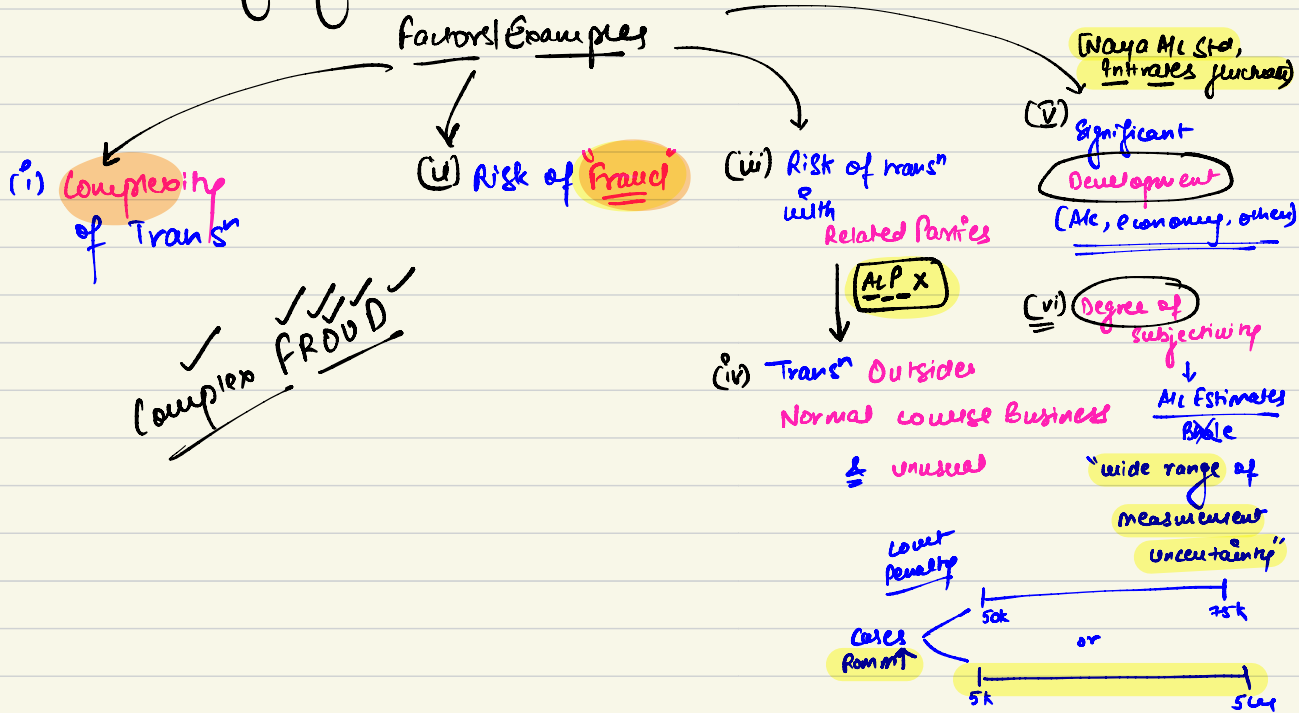 Factors/Examples
(i) Complexity
of Transⁿ
(ii) Risk of "Fraud"
(iii) Risk of transⁿ
with
Related Parties
ALP x
(iv) Transⁿ Outside
Normal course Business
& unusual
[Naya A/c Std,
Int rates fluctuate)
(v)
Significant
Development
(A/c, economy, others)
(vi) Degree of
subjectivity
A/c Estimates
"wide range of
measurement
uncertainty"
Complex FROUD
Court
Penalty
50k
75k
Cases
or
ROMM↑
5k